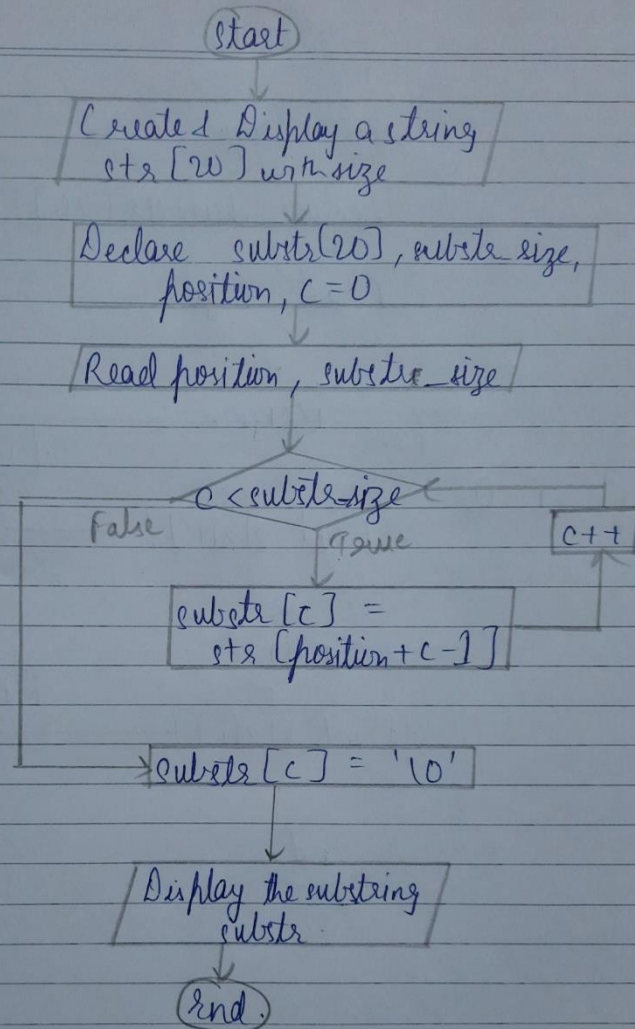 Start
Create & Display a string
str [20] with size
Declare substr[20], substr_size,
position, c=0
Read position, substr_size
c < substr_size
False
True
c++
substr [c] =
str [position + c - 1]
substr [c] = '\0'
Display the substring
substr.
End.